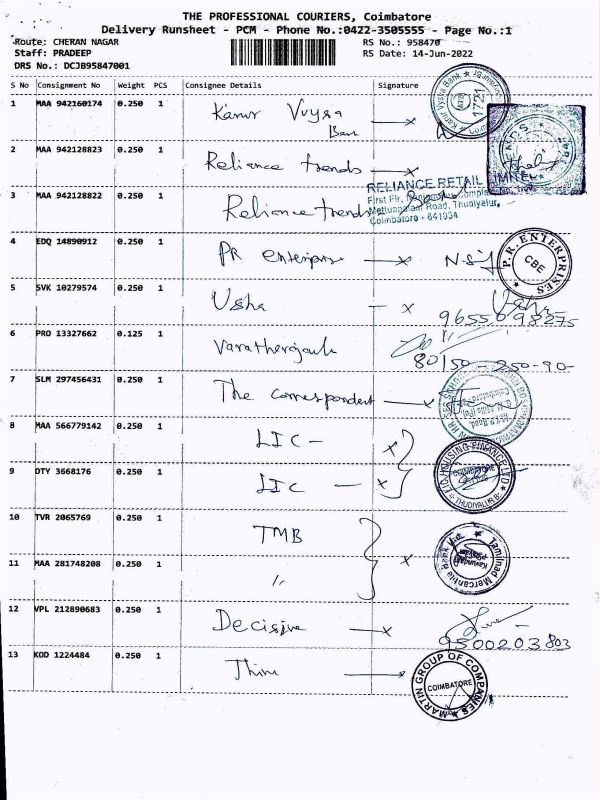 THE PROFESSIONAL COURIERS, Coimbatore
Delivery Runsheet - PCM - Phone No.:0422-3505555 - Page No.:1
Route: CHERAN NAGAR RS No.: 958470
Staff: PRADEEP RS Date: 14-Jun-2022
DRS No.: DCJB95847001
S No Consignment No Weight PCS Consignee Details Signature
1 MAA 942160174 0.250 1 Karur Vysya
Bank
2 MAA 942128823 0.250 1 Reliance trends
RELIANCE RETAIL LIMITED
3 MAA 942128822 0.250 1 Reliance trends
Mettuapalayam Road, Thudiyalur,
Coimbatore - 641034
4 EDQ 14890912 0.250 1 PR enterprise
P.R. ENTERPRISES
CBE
5 SVK 10279574 0.250 1 Usha
9655098275
6 PRO 13327662 0.125 1
80150-250-90-
7 SLM 297456431 0.250 1 The correspondent
8 MAA 566779142 0.250 1 LIC -
9 DTY 3668176 0.250 1 LIC
LIC HOUSING FINANCE LTD
COIMBATORE
10 TVR 2065769 0.250 1 TMB
Tamilnad Mercantile Bank
11 MAA 281748208 0.250 1 "
12 VPL 212890683 0.250 1 Decisive
9500203803
13 KOD 1224484 0.250 1
MARTIN GROUP OF COMPANIES
COIMBATORE